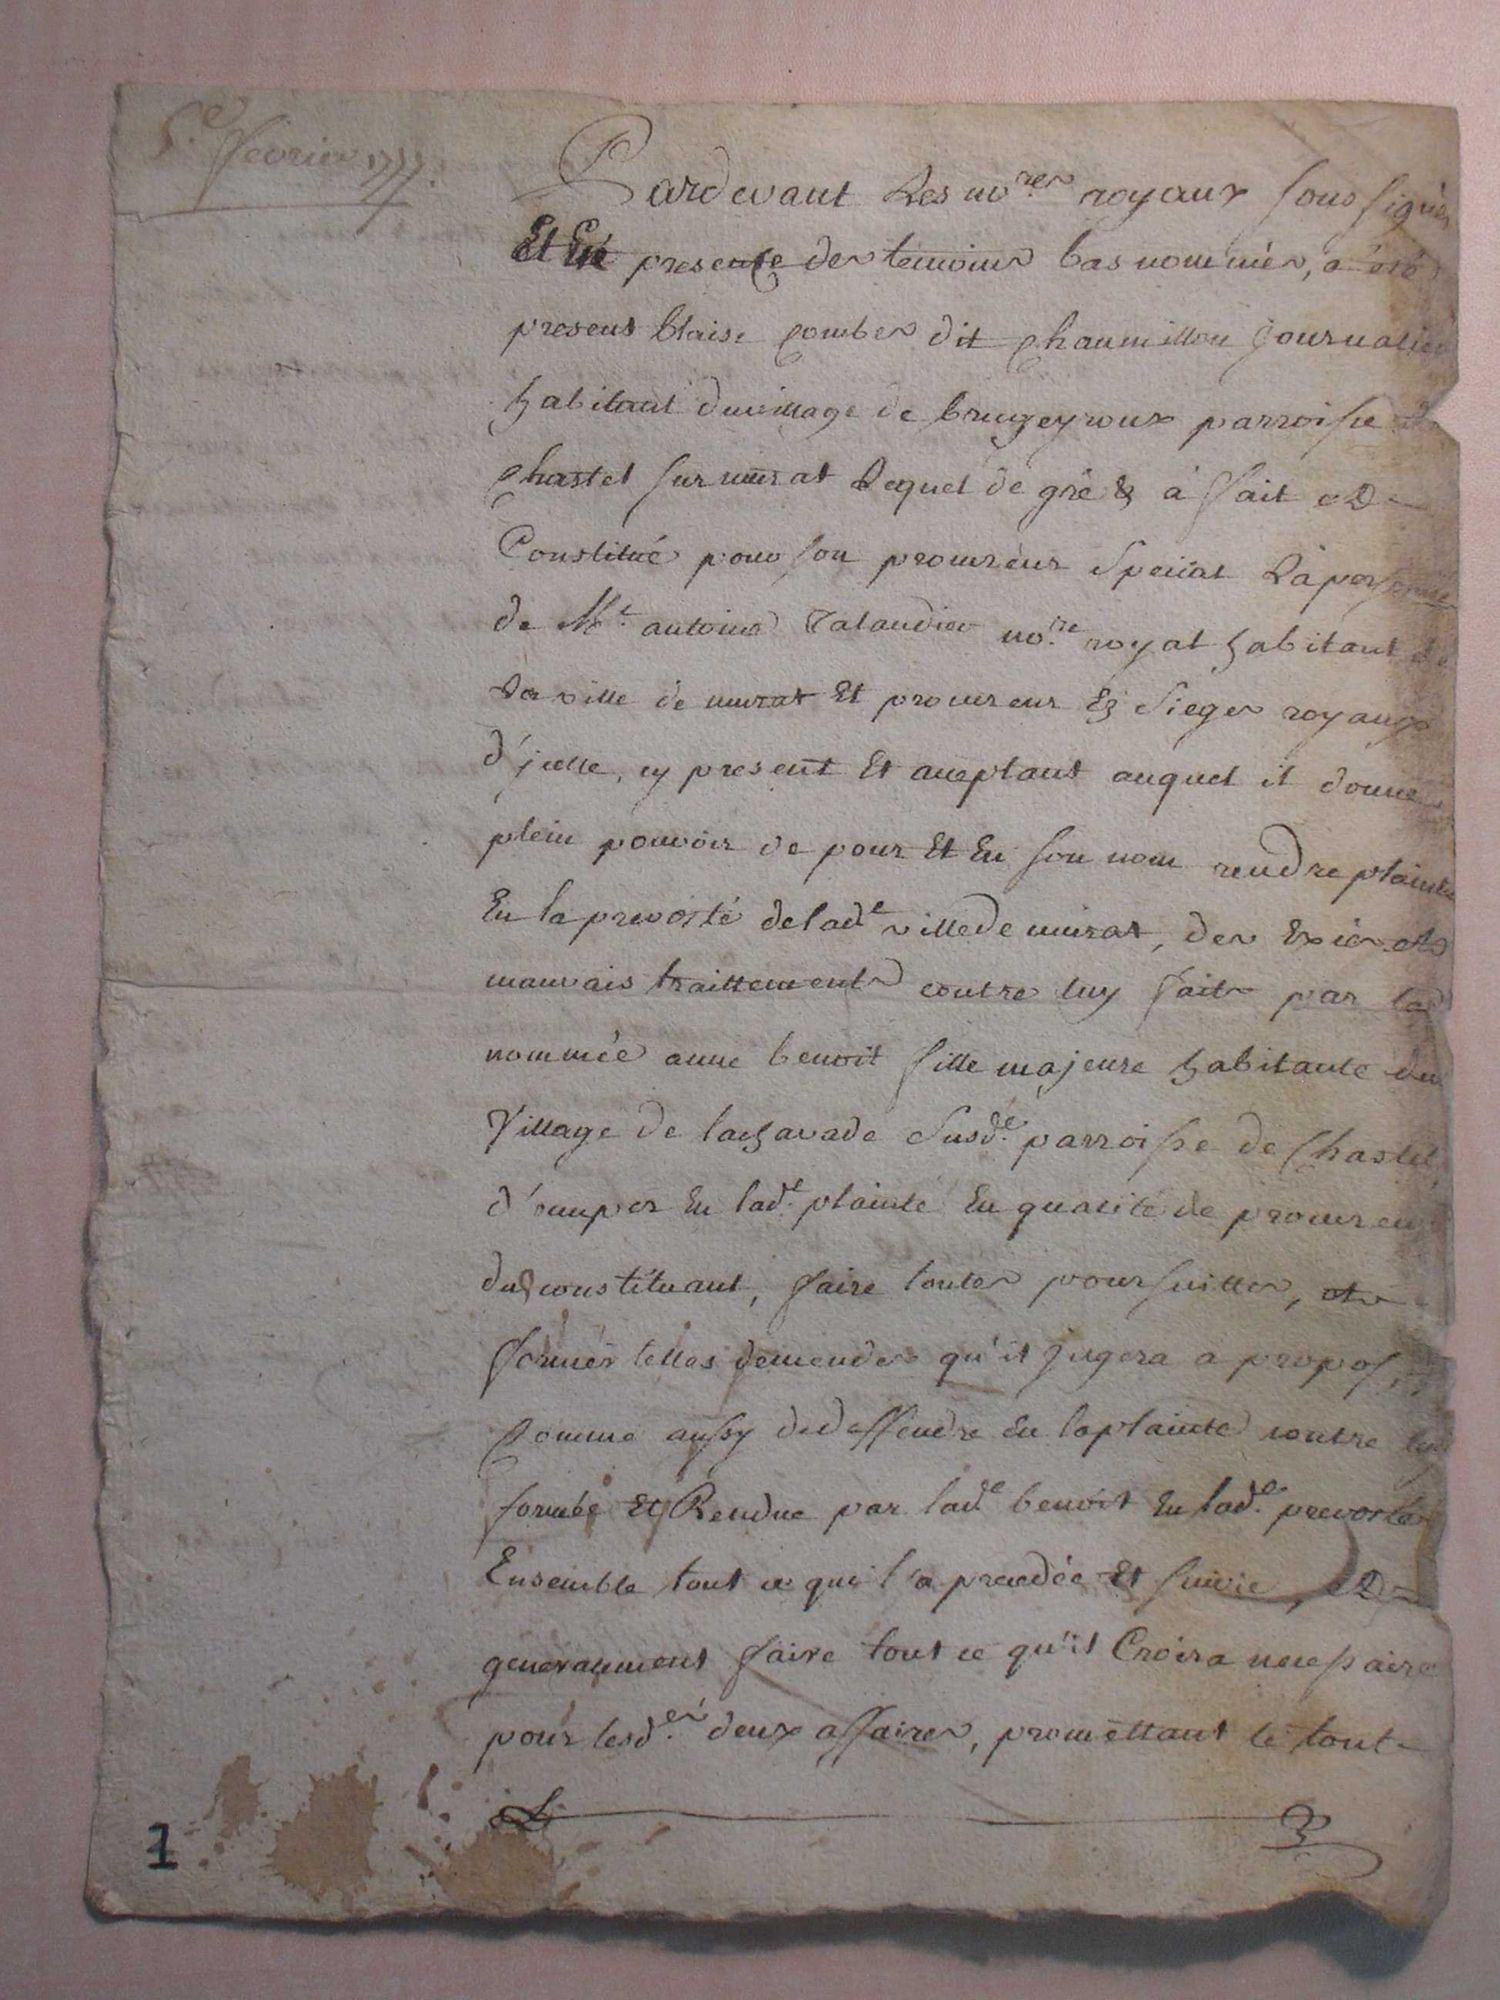 5.e fevrier 1777.
Pardevant Les no.res royaux sous signés
Et En presence des temoins bas nommés, a été
present blaise Combes dit Chaumillou journalier
habitant du village de brugeyroux parroisse de
Chastel sur murat Lequel de gré & a fait et
Constitué pour son procureur Special La personne
de M.e antoine Talandier no.re royal habitant de
La ville de murat Et procureur Ez Sieges royaux
d'jcelle, cy present Et aceptant auquel il donne
plein pouvoir de pour Et En son nom rendre plainte
En la prevosté de lad.e ville de murat, des Exies et
mauvais traittements contre luy faits par la
nommée anne benoit fille majeure habitante du
Village de lachavade Susd.e parroisse de Chastel,
d'ocuper En lad.e plainte En qualité de procureur
dud constituant, faire toutes poursuittes, et
former telles demendes qu'il jugera a propos,
Comme aussy de deffendre En la plainte contre luy
formée Et Rendue par lad.e benoit En lad.e prevosté
Ensemble tout ce qui l'a precedée Et suivie, et
generalement faire tout ce qu'il Croira necessaire
pour lesd.es deux affaires, promettant le tout
1